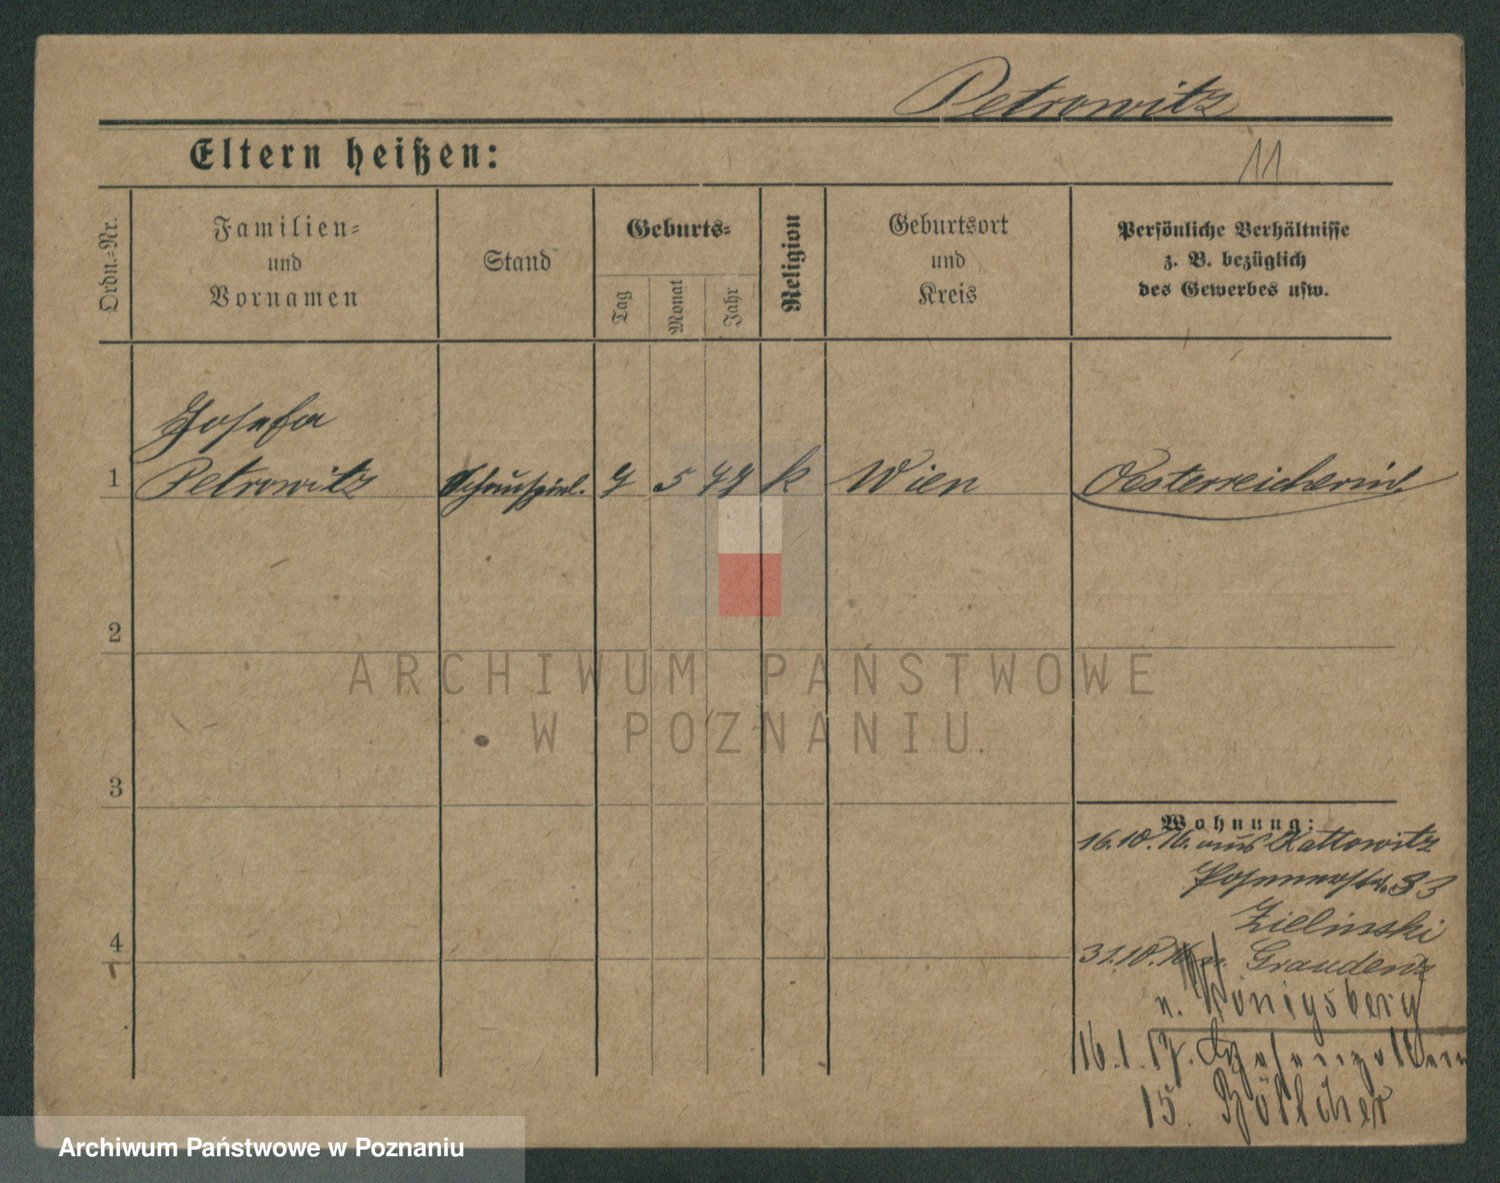 Petrowitz
Eltern heißen:
11
Ordn.-Nr.
Familien-
und
Vornamen
Stand
Geburts-
Tag
Monat
Jahr
Religion
Geburtsort
und
Kreis
Persönliche Verhältnisse
z. B. bezüglich
des Gewerbes usw.
Josefa
1 Petrowitz Schauspiel. 5 k Wien Oesterreicherin
2
ARCHIWUM PAŃSTWOWE
W POZNANIU
3
Wohnung:
16.10.16. aus Kattowitz
33
Zielinski
31.10.16 n. Graudenz
n. Königsberg
16.1.17.
15. Böttcher
4
Archiwum Państwowe w Poznaniu